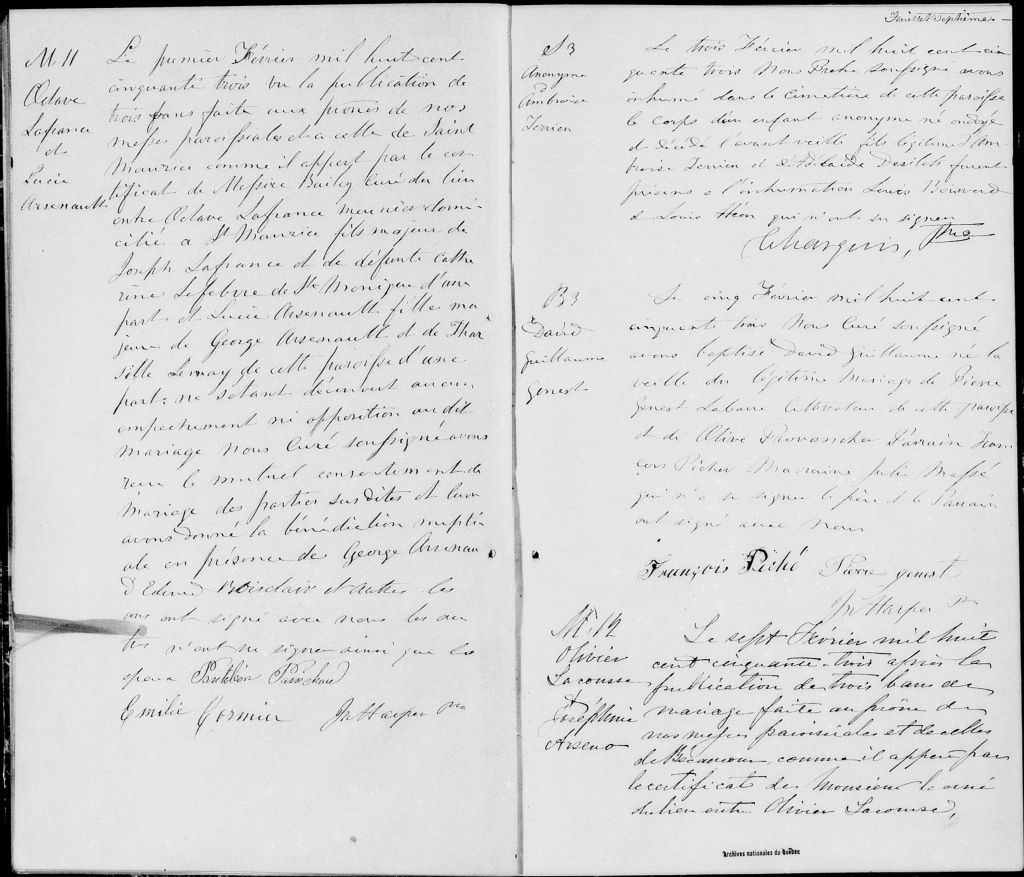 M 11
Octave
Lafrance
et
Lucie
Arsenault
Le premier Février mil huit cent
cinquante trois vu la publication de
trois bans faite aux prônes de nos
messes paroissiales et a celle de Saint
Maurice comme il appert par le cer
tificat de Messire Bailey Curé du lieu
entre Octave Lafrance meunier domi
cilié a St Maurice fils majeur de
Joseph Lafrance et de défunte Cathe
rine Lefebvre de Ste Monique d'une
part et Lucie Arsenault fille ma
jeure de George Arsenault et de Thar
sille Lemay de cette paroisse d'une
part; ne s'étant découvert aucun
empechement ni opposition au dit
mariage Nous Curé soussigné avons
recu le mutuel consentement de
mariage des parties susdites et leur
avons donné la bénédiction nupti
ale en présence de George Arsenau
D'Edouard Boisclair et autres les
uns ont signé avec nous les au
tres n'ont su signer ainsi que les
epoux
Emilie Cormier Jn Harper Ptre
Feuillet Septième.
S 3
Anonyme
Ambroise
Terrien
Le trois Février mil huit cent cin
quante trois Nous Prêtre soussigné avons
inhumé dans le cimetière de cette paroisse
le corps d'un enfant anonyme né ondoyé
et décédé l'avant veille fils légitime d'Am
broise Terrien et d'Adelaide Desilets furent
présens a l'inhumation Louis
& Louis Héon qui n'ont su signer
Ptre
B 3
David
Guillaume
Genest
Le cinq Février mil huit cent
cinquante trois Nous Curé soussigné
avons baptisé David Guillaume né la
veille du légitime Mariage de Pierre
Genest Labarre Cultivateur de cette paroisse
et de Olive Provancher Parrain Fran
çois Picher Marraine Julie Massé
qui n'a su signer le père et le Parrain
ont signé avec nous
François Piché Pierre genest
Jn Harper Ptre
M. 12
Olivier
Lacourse
&
Joséphine
Arseno
Le sept Février mil huit
cent cinquante-trois après la
publication de trois bans de
mariage faite au prône de
nos messes paroissiales et de celles
de Bécancour, comme il appert par
le certificat de Monsieur le curé
du lieu entre Olivier Lacourse,
Archives nationales du Québec